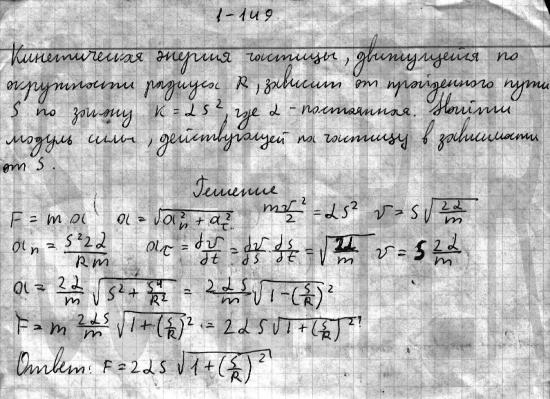 1-149
Кинетическая энергия частицы, движущейся по
окружности радиуса R, зависит от пройденного пути
S по закону K = αS², где α - постоянная. Найти
модуль силы, действующей на частицу в зависимости
от S.
Решение
F = m a a = √(aₙ² + a_τ²) mv²/2 = αS² v = S√(2α/m)
aₙ = S²2α/Rm a_τ = dv/dt = dv/dS dS/dt = √(2α/m) v = S 2α/m
a = 2α/m √(S² + S⁴/R²) = 2αS/m √(1-(S/R)²)
F = m 2αS/m √(1+(S/R)²) = 2αS√(1+(S/R)²)
Ответ: F = 2αS√(1+(S/R)²)